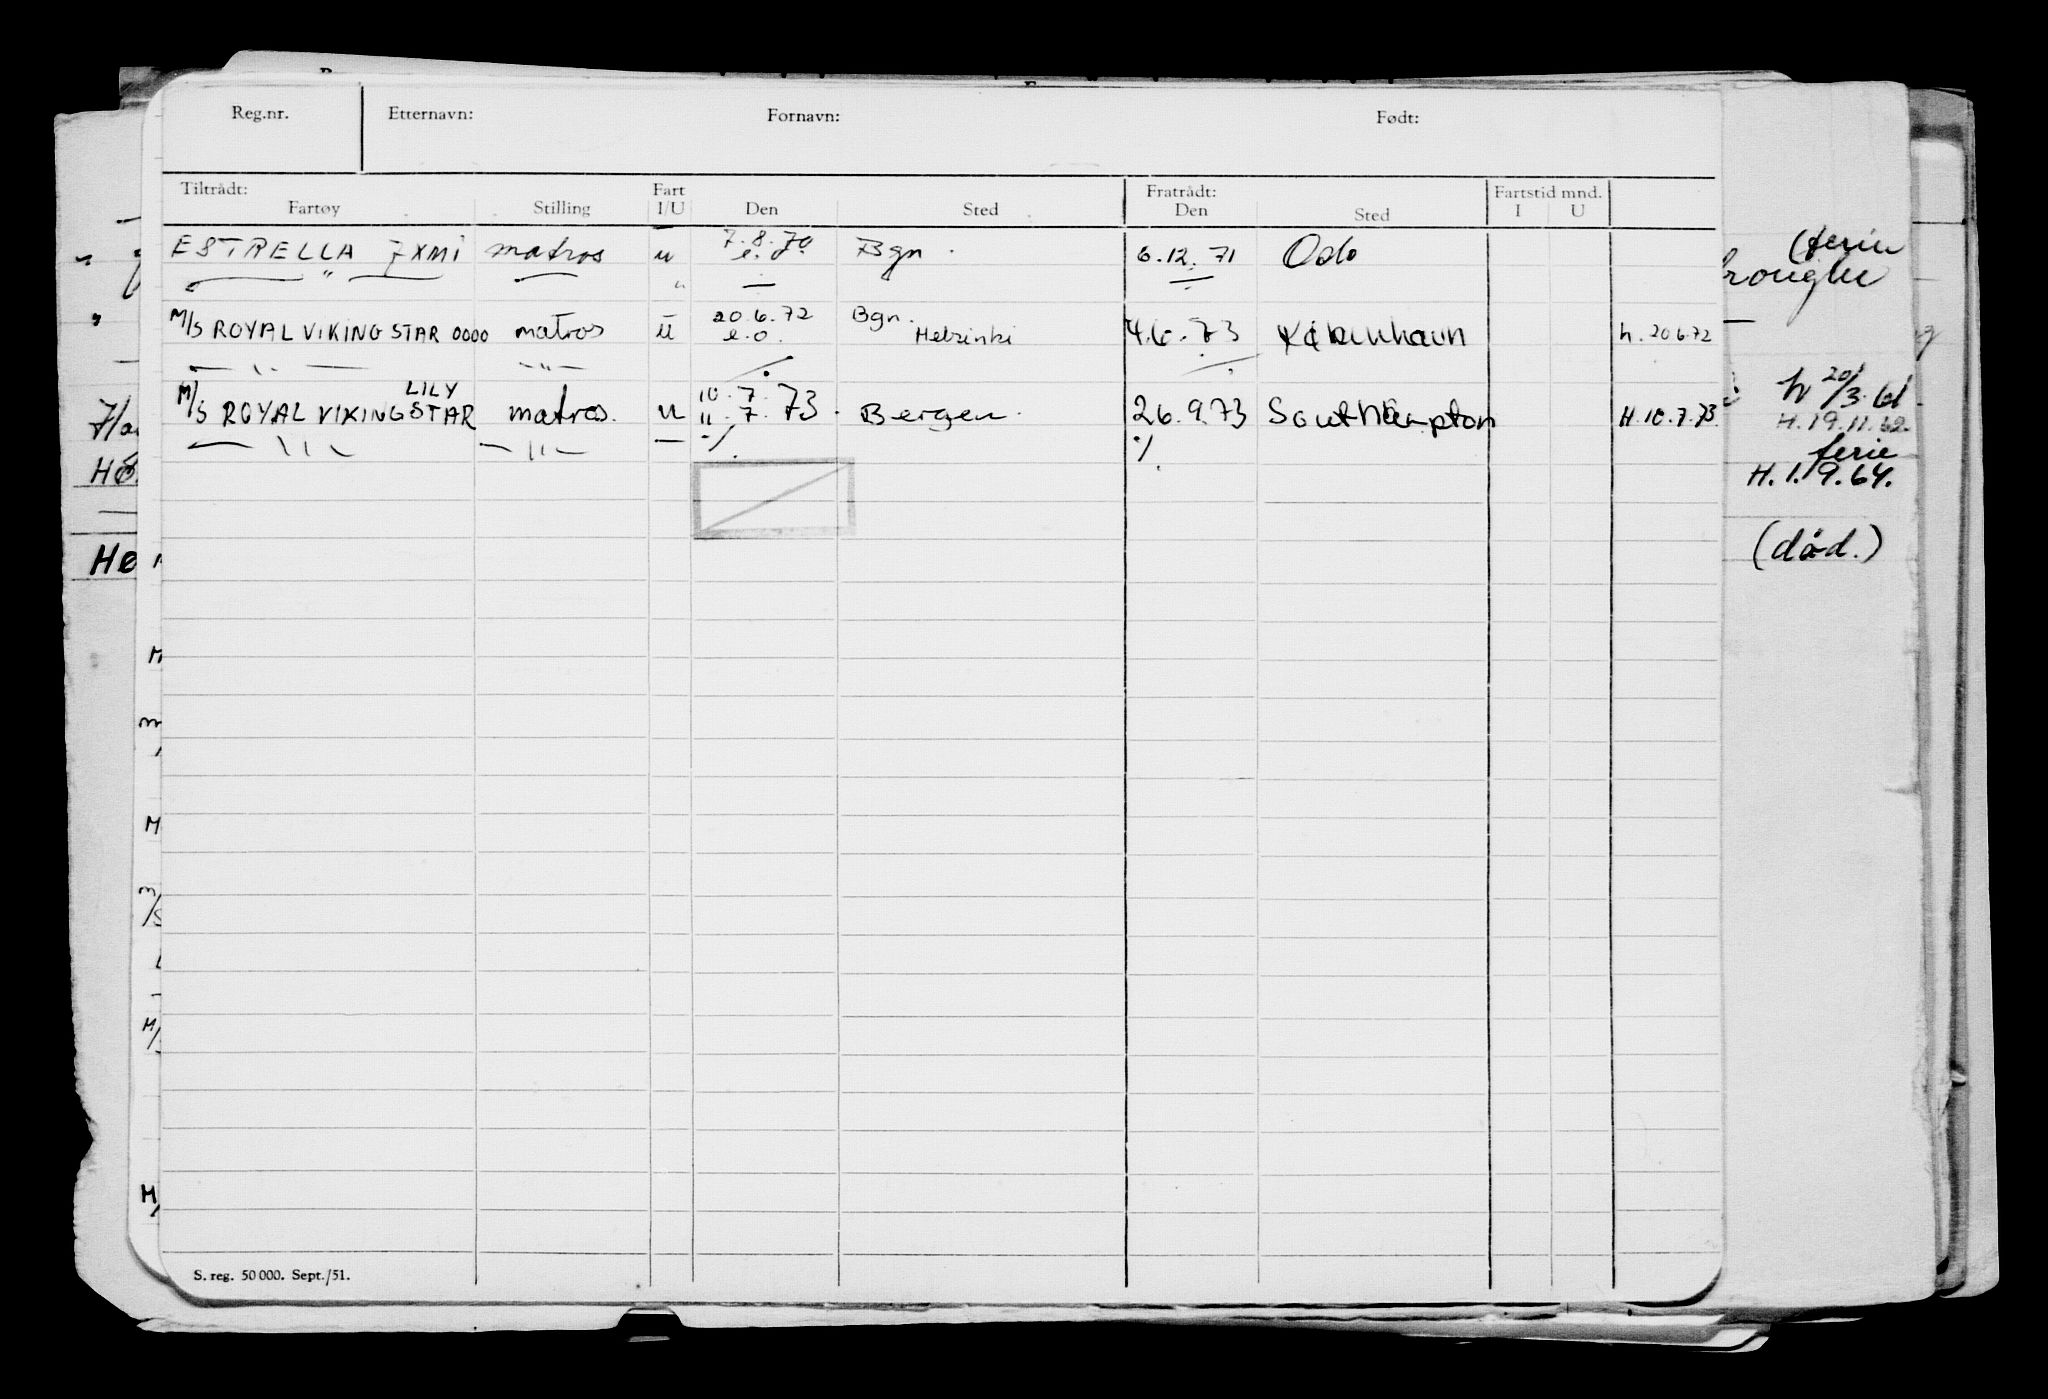 Reg.nr. Etternavn: Fornavn: Født:
Tiltrådt: Fart Fratrådt: Fartstid mnd.
Fartøy Stilling I/U Den Sted Den Sted I U
ESTRELLA 7XMI matros u 7.8.70 Bgn. 6.12.71 Oslo
e.o.
M/S ROYAL VIKING STAR 0000 matros u 20.6.72 Bgn. 4.6.73 København h. 20.6.72
e.o. Helsinki
LILY 10.7.
M/S ROYAL VIKING STAR matros. u 11.7.73. Bergen. 26.9.73 Southampton H. 10.7.73.
S. reg. 50 000. Sept./51.
(ferie
h 20/3.61
H. 19.11.62.
ferie
H. 1.9.64.
(død.)